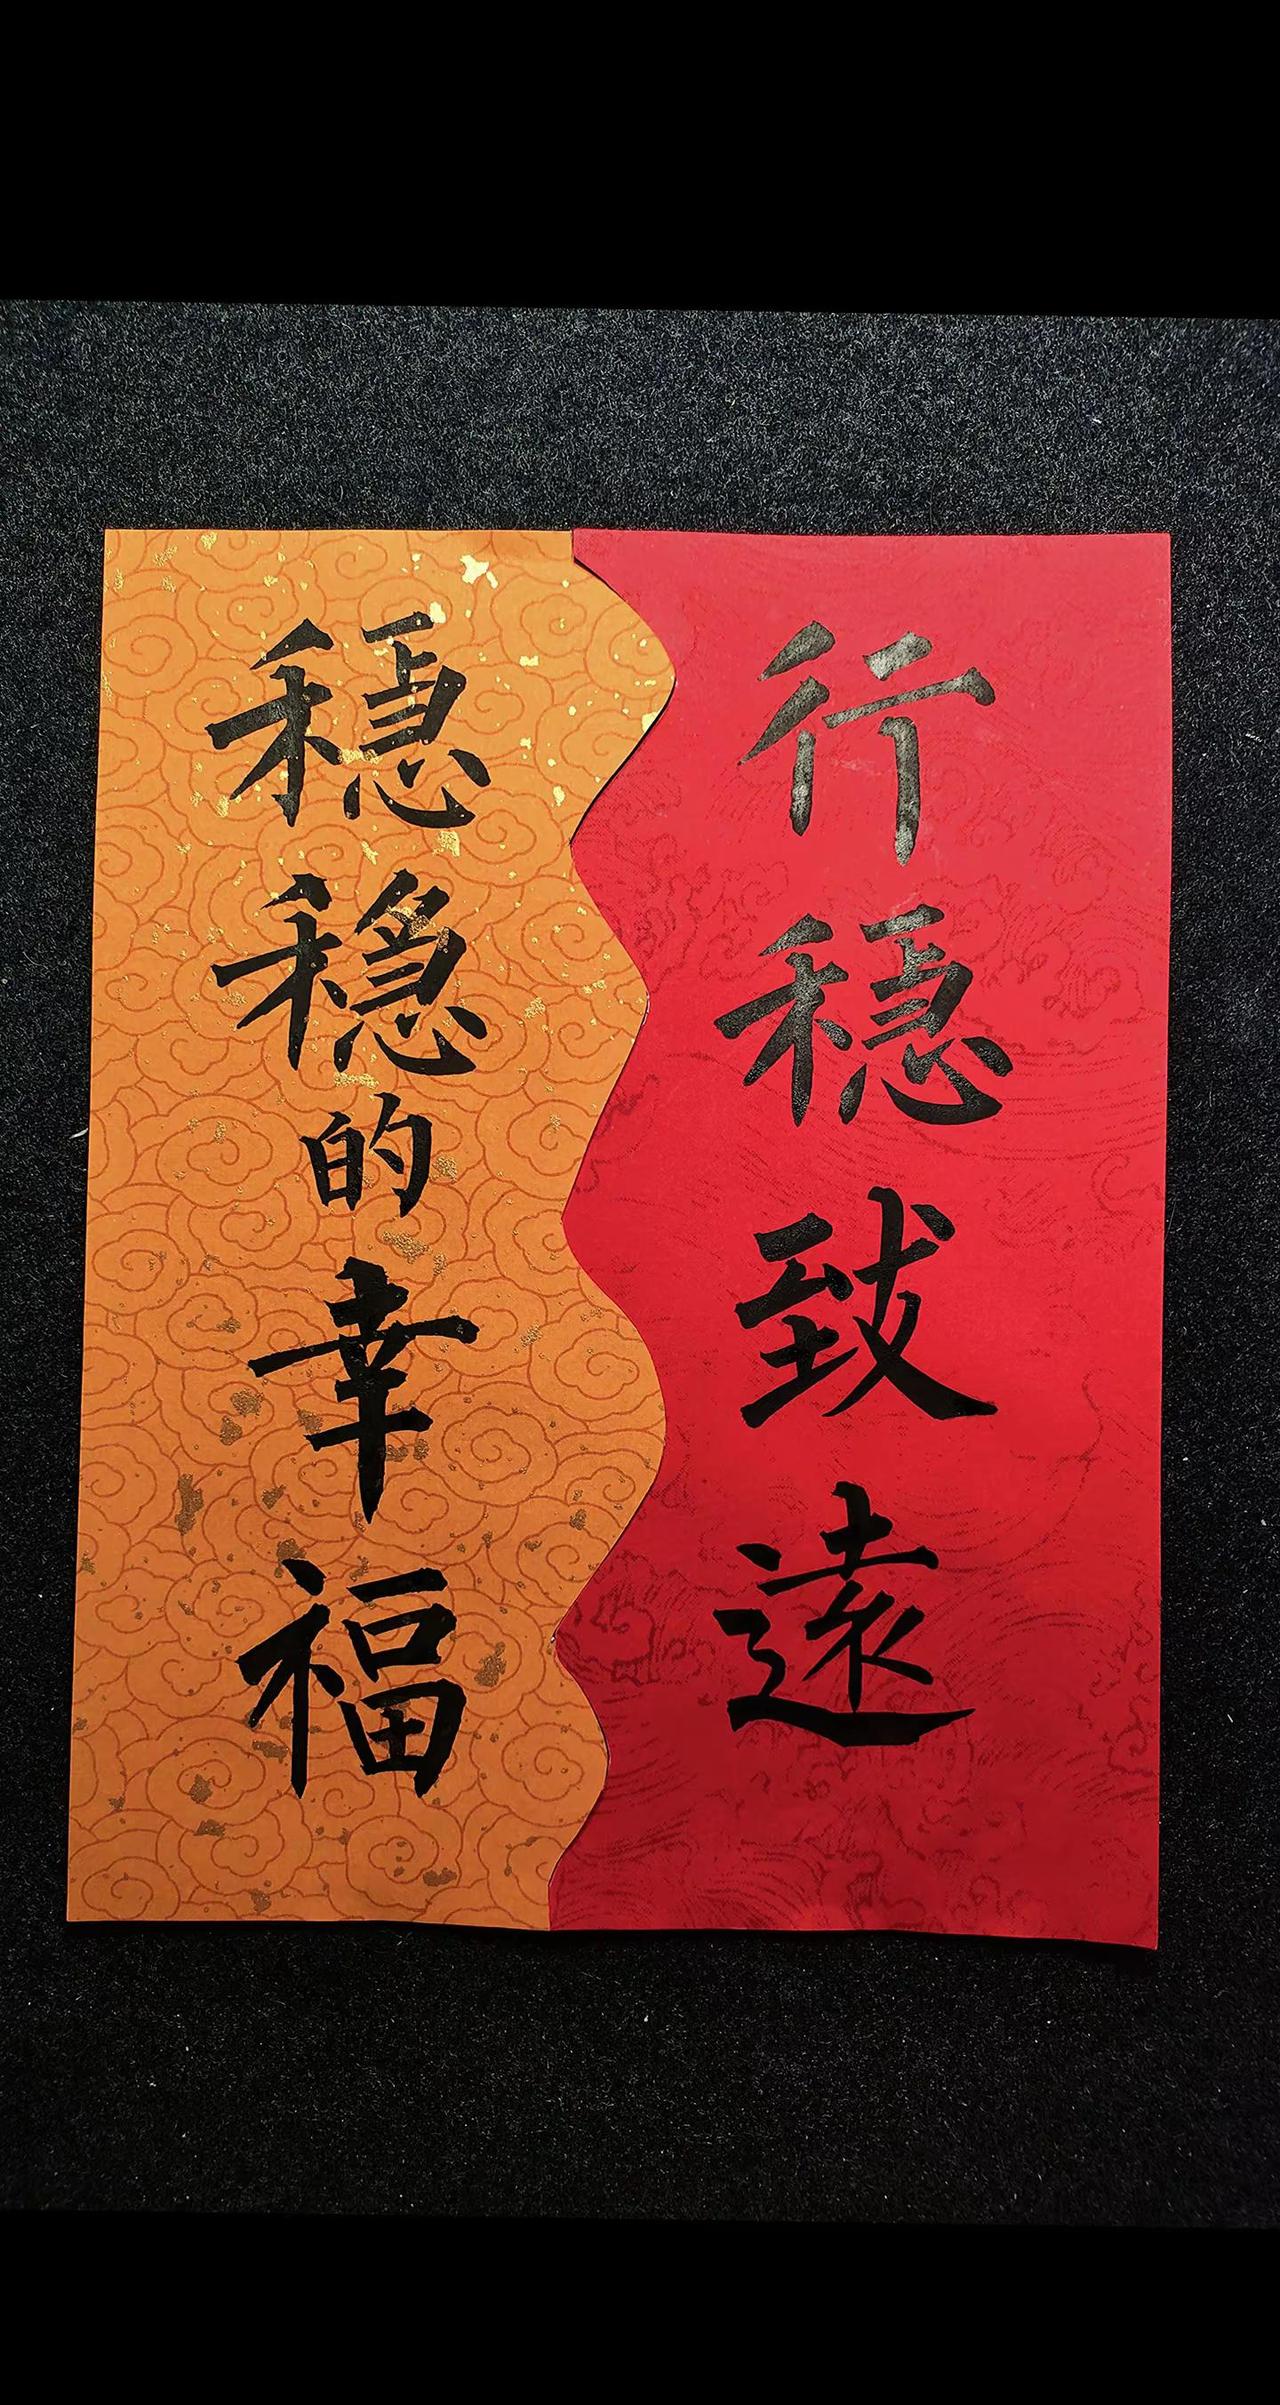 行穩致遠
穩穩的幸福